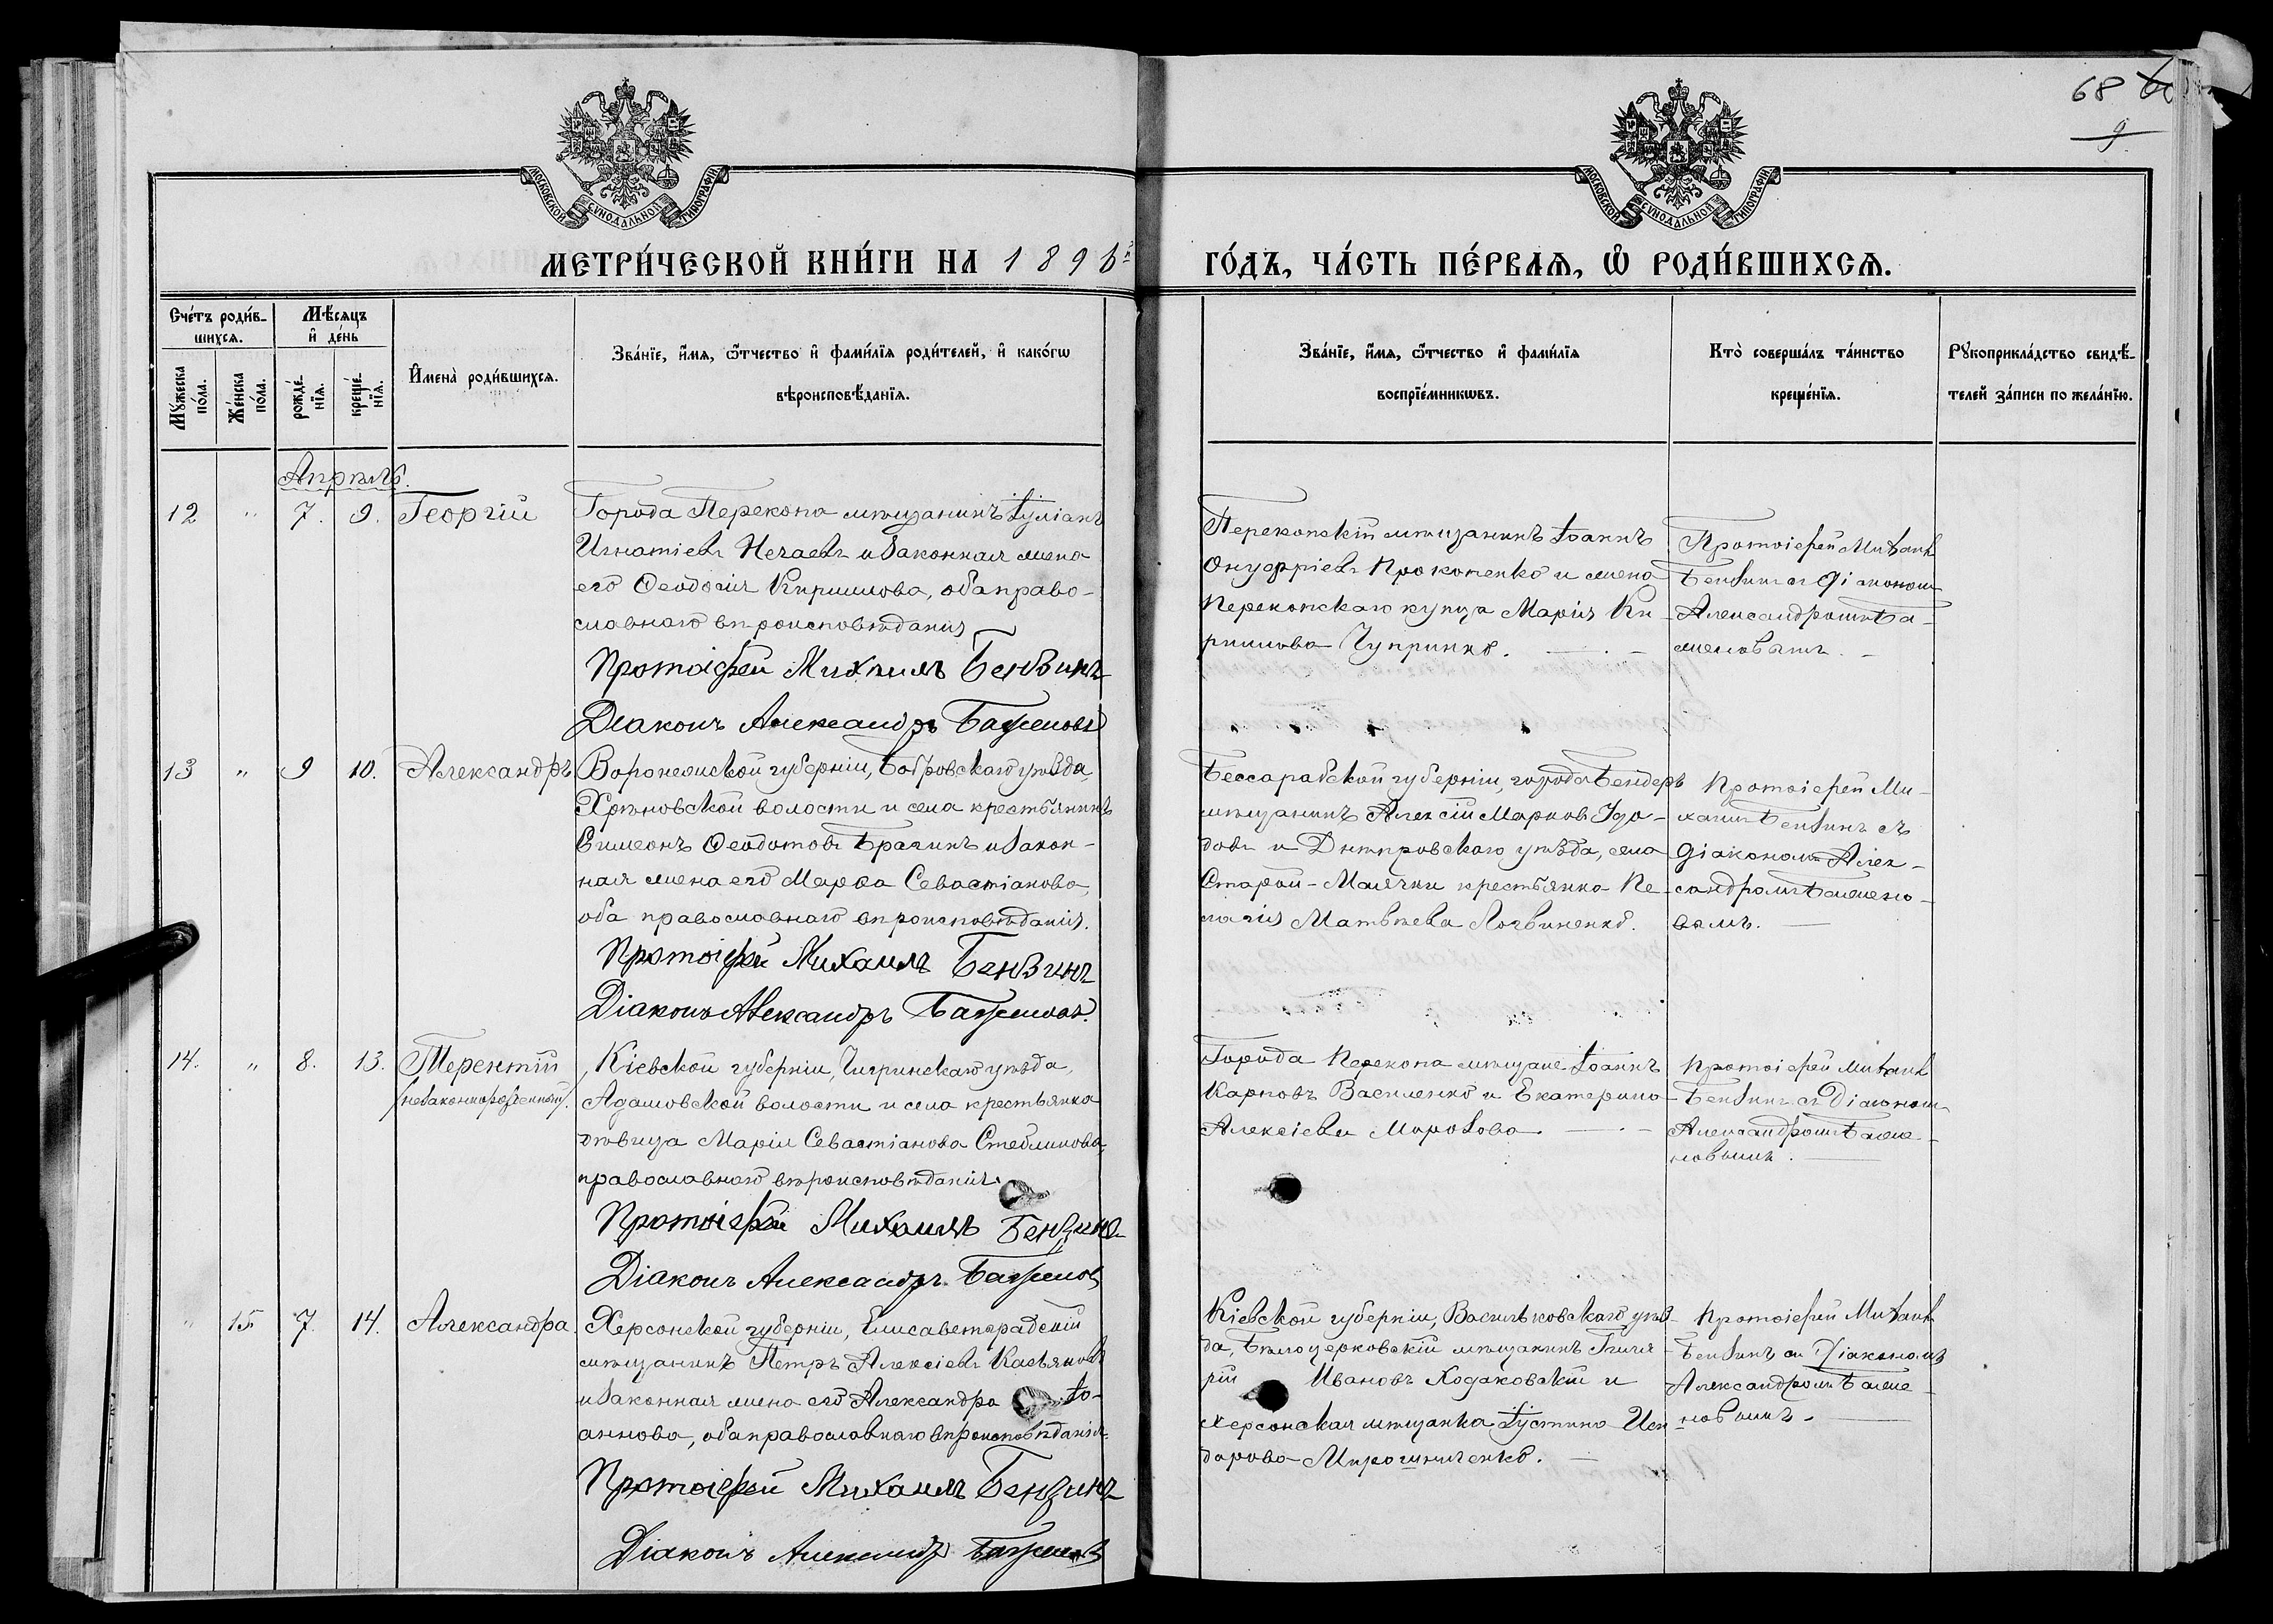 68
9
МОСКОВСКОЙ СѴНОДАЛЬНОЙ ТИПОГРАФІИ
МОСКОВСКОЙ СѴНОДАЛЬНОЙ ТИПОГРАФІИ
МЕТРИ́ЧЕСКОЙ КНИ́ГИ НА 1896
ГО́ДЪ, ЧА́СТЬ ПЕ́РВАѦ, Ѡ РОДИ́ВШИХСѦ.
Сче́тъ роди́в-
шихсѧ.
Мꙋ́жеска по́ла.
Же́нска по́ла.
Мѣ́сѧцъ
и де́нь
рожде́-
нїѧ.
креще́-
нїѧ.
Имена̀ роди́вшихсѧ.
Зва́нїе, и́мѧ, ѻ́тчество и фами́лїѧ роди́телей, и како́гѡ
вѣроисповѣ́данїѧ.
Зва́нїе, и́мѧ, ѻ́тчество и фами́лїѧ
воспрїе́мникѡвъ.
Кто̀ соверша́лъ та́инство
креще́нїѧ.
Рꙋкоприкла́дство свидѣ́-
телей за́писи по жела́нїю.
Апрѣль.
12 " 7. 9. Георгій
Города Перекопа мѣщанинъ Іуліанъ
Игнатіевъ Нечаевъ и законная жена
его Ѳеодосія Кириллова, оба право-
славнаго вѣроисповѣданія
Протоіерей Михаилъ Бензинъ
Діаконъ Александръ Баженовъ
Перекопскій мѣщанинъ Іоаннъ
Онуфріевъ Прокопенко и жена
Перекопскаго купца Марія Ки-
риллова Чупринко.
Протоіерей Михаилъ
Бензинъ съ Діакономъ
Александромъ Ба-
женовымъ.
13 " 9 10. Александръ
Воронежской губерніи, Бобровскаго уѣзда,
Хрѣновской волости и села крестьянинъ
Симеонъ Ѳеодотовъ Брагинъ и закон-
ная жена его Марѳа Севастіанова,
оба православнаго вѣроисповѣданія.
Протоіерей Михаилъ Бензинъ
Діаконъ Александръ Баженовъ.
Бессарабской губерніи, города Бендеръ
мѣщанинъ Алексій Марковъ Удо-
довъ и Днѣпровскаго уѣзда, села
Старой-Маячки крестьянка Пе-
лагія Матвѣева Логвиненко.
Протоіерей Ми-
хаилъ Бензинъ съ
Діакономъ Алек-
сандромъ Бажено-
вымъ.
14. " 8. 13. Терентій
/незаконнорожденный/.
Кіевской губерніи, Чигринскаго уѣзда,
Адамовской волости и села крестьянка
дѣвица Марія Севастіанова Стеблинова,
православнаго вѣроисповѣданія.
Протоіерей Михаилъ Бензинъ
Діаконъ Александръ Баженовъ
Города Перекопа мѣщане Іоаннъ
Карповъ Василенко и Екатерина
Алексіева Морозова.
Протоіерей Михаилъ
Бензинъ съ Діакономъ
Александромъ Баже-
новымъ.
" 15 7. 14. Александра
Херсонской губерніи, Елисаветградскій
мѣщанинъ Петръ Алексіевъ Касьяновъ
и законная жена его Александра Іо-
аннова, оба православнаго вѣроисповѣданія.
Протоіерей Михаилъ Бензинъ
Діаконъ Александръ Баженовъ
Кіевской губерніи, Васильковскаго уѣз-
да, Бѣлоцерковскій мѣщанинъ
рій Ивановъ Ходаковскій и
Херсонская мѣщанка Іустина
дорова Мирошниченко.
Протоіерей Михаилъ
Бензинъ съ Діакономъ
Александромъ Баже-
новымъ.